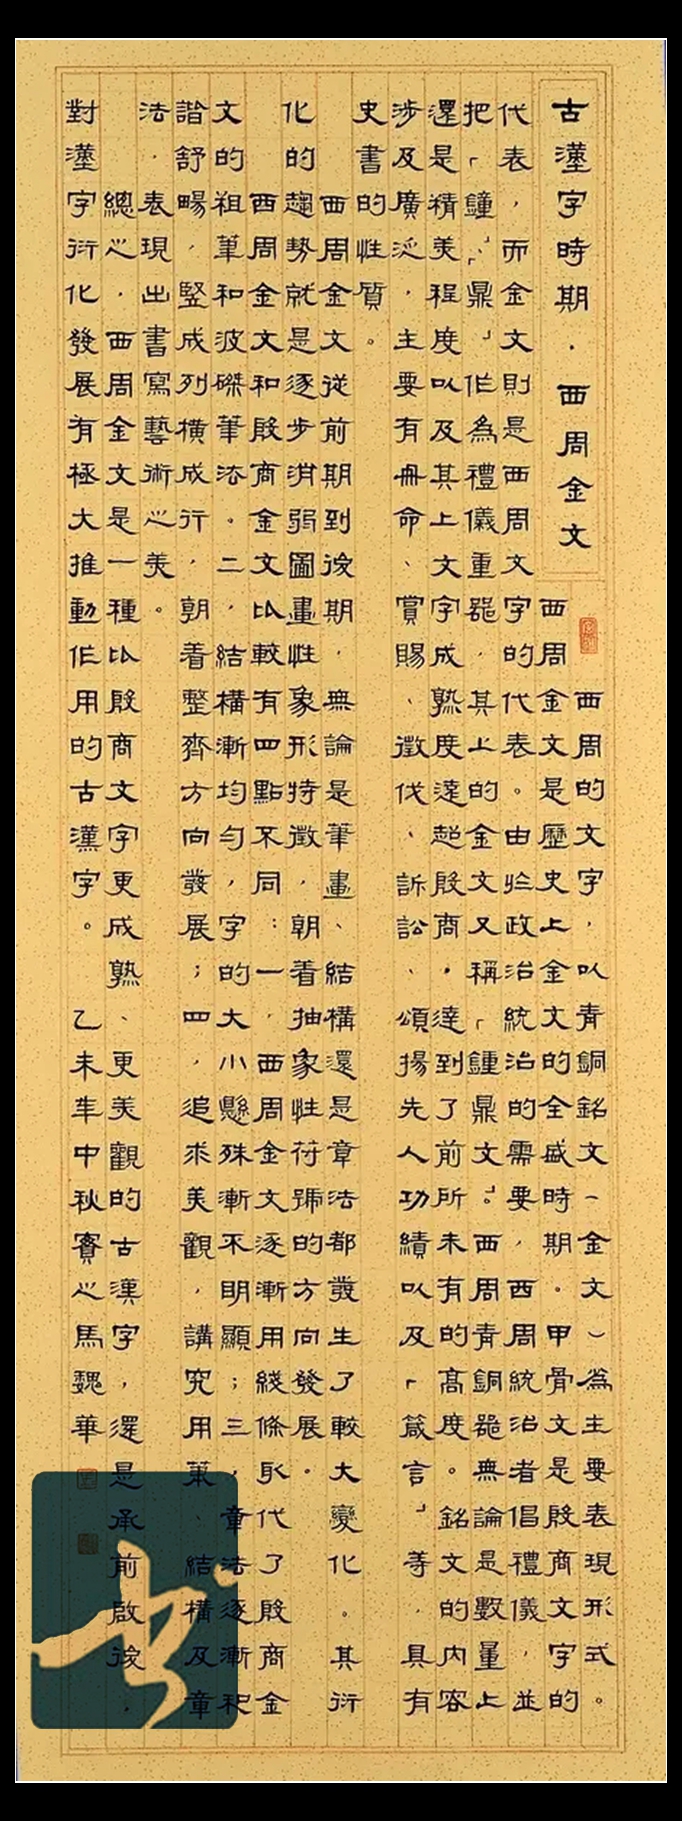 古漢字時期·西周金文
西周的文字，以青銅銘文（金文）為主要表現形式。
西周金文是歷史上金文的全盛時期。甲骨文是殷商文字的
代表，而金文則是西周文字的代表。由於政治統治的需要，西周統治者倡禮儀，並
把「鐘」、「鼎」作為禮儀重器，其上的金文又稱「鐘鼎文」。西周青銅器無論是數量上
還是精美程度以及其上文字成熟度遠超殷商，達到了前所未有的高度。銘文的內容
涉及廣泛，主要有冊命、賞賜、徵伐、訴訟、頌揚先人功績以及「箴言」等，具有
史書的性質。
西周金文從前期到後期，無論是筆畫、結構還是章法都發生了較大變化。其衍
化的趨勢就是逐步消弱圖畫性象形特徵，朝着抽象性符號的方向發展。
西周金文和殷商金文比較有四點不同：一，西周金文逐漸用綫條取代了殷商金
文的粗筆和波磔筆法。二，結構漸均勻，字的大小懸殊漸不明顯；三，章法逐漸和
諧舒暢，竪成列橫成行，朝着整齊方向發展；四，追求美觀，講究用筆、結構及章
法，表現出書寫藝術之美。
總之，西周金文是一種比殷商文字更成熟、更美觀的古漢字，還是承前啟後，
對漢字衍化發展有極大推動作用的古漢字。 乙未年中秋賓之馬魏華
书